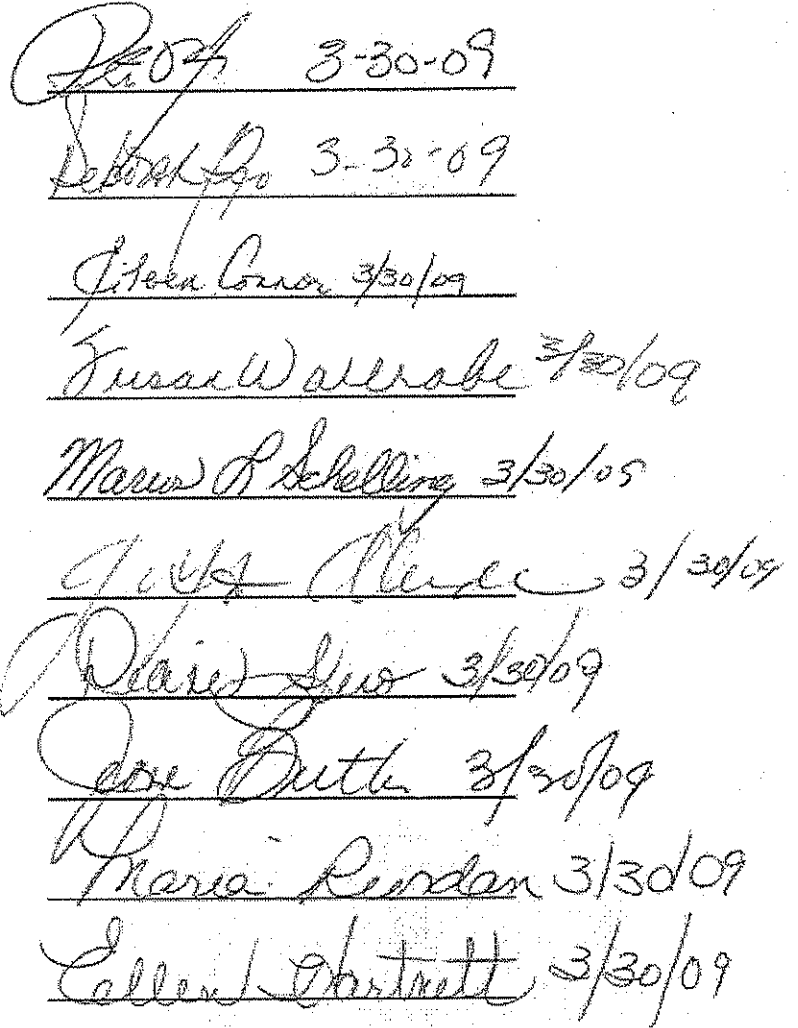 3-30-09
Deborah 3-30-09
Eileen Connor 3/30/09
Susan Wallrabe 3/30/09
Marion L Schelling 3/30/09
3/30/09
Diane 3/30/09
Jane Butler 3/30/09
Maria Reordan 3/30/09
Ellen Hartnett 3/30/09